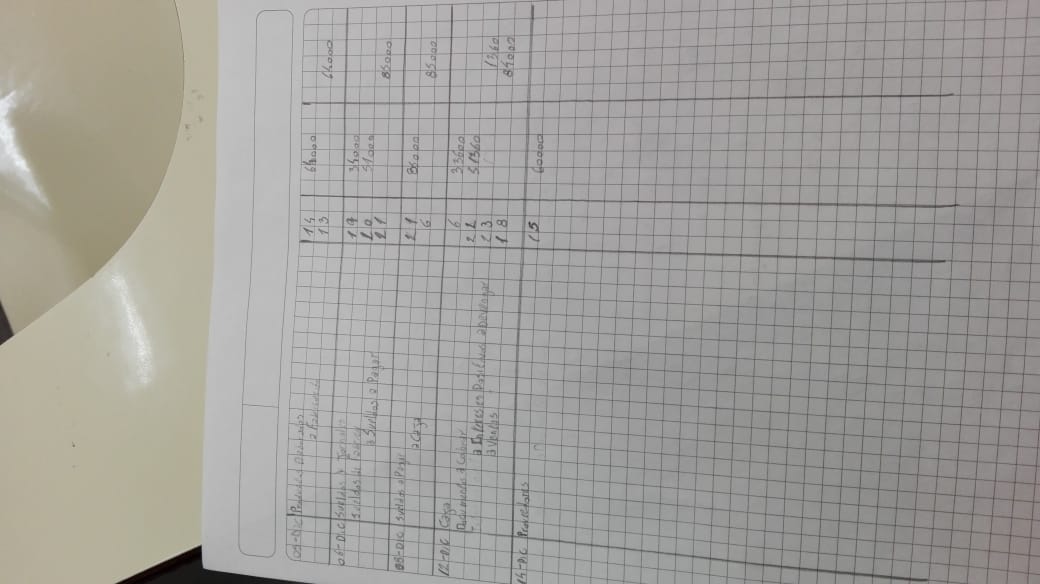 05-Dic Productos 14 64000
a 13 64000
06-Dic Sueldos y Jornales 19 34000
Sueldos de 20 51000
a Sueldos a Pagar 21 85000
08-Dic Sueldos a Pagar 21 85000
a Caja 6 85000
12-Dic Caja 6 33600
Documentos a Cobrar 22 51360
a Intereses Positivos a Devengar 23 1360
a Ventas 18 84000
14-Dic Proveedores 15 60000